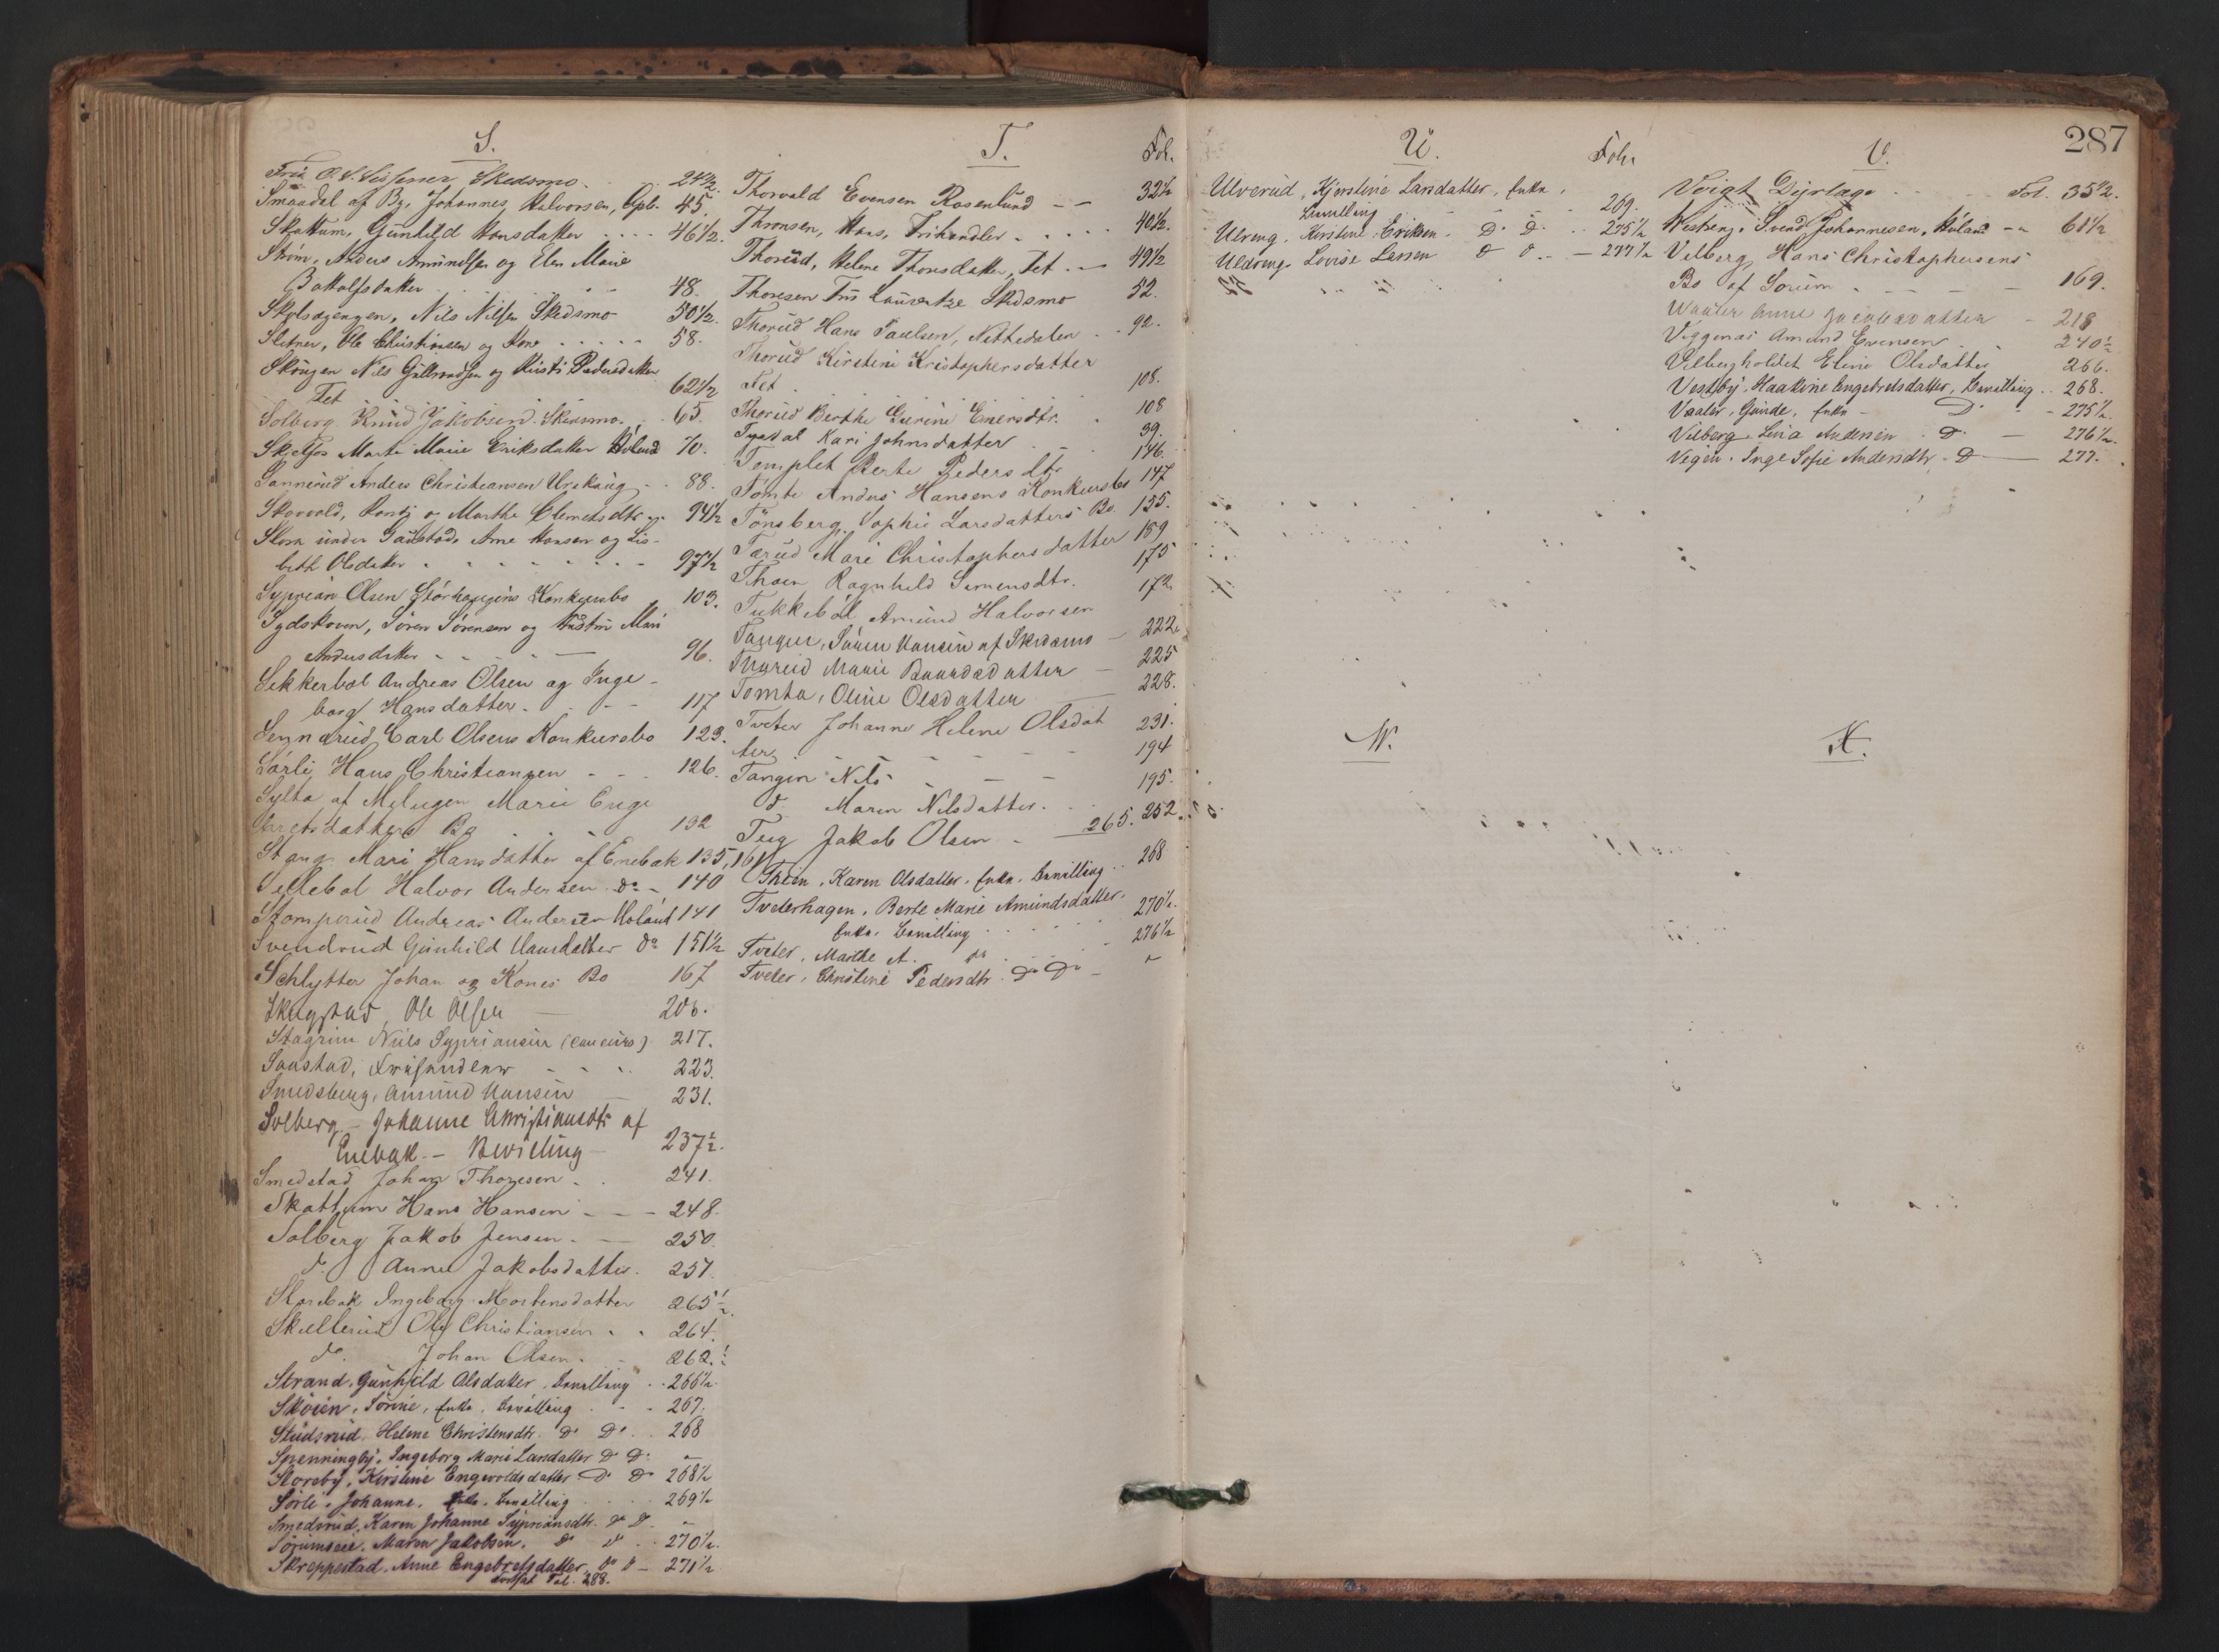 S.
Fru O. S. Skedsmo. 24½.
Smaadal af Bg. Johannes Halvorsen, 45.
Skattum, Gunhild Hansdatter .... 46½.
Strøm, Anders Amundsen og Elen Marie
Botholfsdatter 48.
Nils Nilsen Skedsmo 50½.
Sletner, Ole Christiansen og Kone 58.
Nils Gulbrandsen og Kirsti Pedersdatter
Fet 62½
Solberg Knud Jakobsen Skedsmo. 65.
Marte Marie Eriksdatter Höland 70.
Sannerud Anders Christiansen Urskoug 88.
Skovold, og Marthe Clemetsdtr 94½
under Arne Hansen og Lis-
beth Olsdatter 97½
Syprian Olsen Konkursbo 103.
Sydskoven, Sören Sörensen og Hustru Mari
Andersdatter 96.
Sekkerbøl Andreas Olsen og Inge-
borg Hansdatter. 117
Carl Olsens Konkursbo 123.
Sørli, Hans Christiansen 126.
Sylta af Marie Enge
bretsdatters Bo 132
Stang Mari Hansdatter af Enebak 135, 161
Sellebøl Halvor Andersen do 140
Stomperud Andreas Andersen Höland 141
Svendrud Gunhild Hansdatter do 151½
Schlytter Johan og Kones Bo 167
Skugstad Ole Olsen 206.
Stagrim Niels Sypriansen (concurs) 217.
Saustad, 223.
Smedsberg, Amund Hansen 231.
Solberg Johanne Christiansdtr af
Enebak - Bevilling 237½.
Smedstad Johan Thoresen. 241.
Skattum Hans Hansen 248.
Solberg Jakob Jensen. 250
do Anne Jakobsdatter. 257.
Storebak Ingeborg Mortensdatter 265½.
Skullerud Ole Christiansen 264.
do. Johan Olsen. 262.½
Strand, Gunhild Olsdatter, Bevilling 266½.
Skoien, Sorine, Enke, Bevilling 267.
Studsrud, Helene Christensdtr. Do Do. 268
Spenningby, Ingeborg Marie Larsdatter Do Do. -
Storeby, Kirstine Engevoldsdatter Do Do 268½
Sörli, Johanne. Enke. Bevilling 269½
Smedsrud, Karen Johanne Sypriansdtr. Do Do -
Sörumseie. Maren Jakobsen. Do Do 270½.
Skreppestad. Anne Engebretsdatter. Do Do - 271½
fortsat Fol. 288.
T. Fol.
Thorvald Evensen Rosenlund -- 32½
Thronsen, Hans, Frihandler 40½.
Thorud, Helene Thorsdatter, Fet 49½
Thoresen Fru Skedsmo 52.
Thorud Hans Paulsen, Nittedalen 92.
Thorud Kirstine Kristophersdatter
Fet 108.
Thorud Berthe Gurine Enersdtr. 108
Tyadal Kari Johnsdatter 39.
Templet Berte Pedersdtr 146.
Tomte Anders Hansens Konkursbo 147
Tönsberg, Sophie Larsdatters Bo 155.
Tærud Mari Christophersdatter 189
Thoen Ragnhild Simensdtr. 175
Tukkebøl Amund Halvorsen 172
Tangen, Sören Hansen af Skedsmo 222.
Thorud Marie Baardsdatter 225
Tomta, Oline Olsdatter 228.
Tveter Johanne Helene Olsdat 231.
ter 194
Tangen Nils 195.
do Maren Nilsdatter.
Teig Jakob Olsen 265. 252.
Thein, Karen Olsdatter, Enke, Bevilling 268
Tveterhagen, Berte Marie Amundsdatter.
Enke, Bevilling 270½.
Tveter, Marthe A. do 276½
Tveter, Christine Pedersdtr. Do Do - -
287
U. Folio
Ulverud, Kjerstine Larsdatter, Enke,
Bevilling 269.
Ulveng, Kirstine Eriksen Do Do 275½
Uldreng, Lovise Larsen Do Do 277½
V.
Voigt Dyrlæge Fol. 35½.
Westreng, Svend Johannesen, Höland -- 61½
Velberg Hans Christophersens
Bo af Sorum 169.
Vaaler Anne Jacobsdatter 218
Viggenas Amund Evensen 240½
Vilbergholdet Eline Olsdatter 266.
Vestby, Haakine Engebretsdatter, Bevilling 268.
Vaaler, Gunde, Enke Do 275½.
Vilberg, Lina Andersen Do 276½.
Vegen, Inge Sofie Andersdtr Do 277.
W.
X.